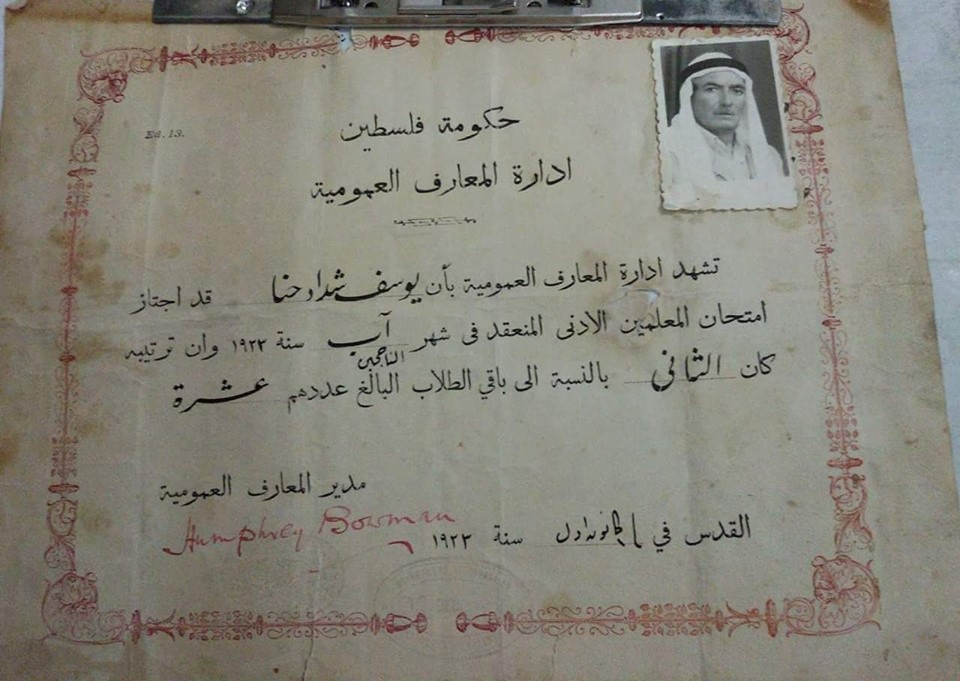 Ed. 13.
حكومة فلسطين
ادارة المعارف العمومية
تشهد ادارة المعارف العمومية بأن يوسف شداد حنا قد اجتاز
امتحان المعلمين الادنى المنعقد في شهر آب سنة ١٩٢٣ وان ترتيبه
الناجحين
كان الثاني بالنسبة الى باقي الطلاب البالغ عددهم عشرة
مدير المعارف العمومية
Humphrey Bowman
القدس في كانون اول سنة ١٩٢٣